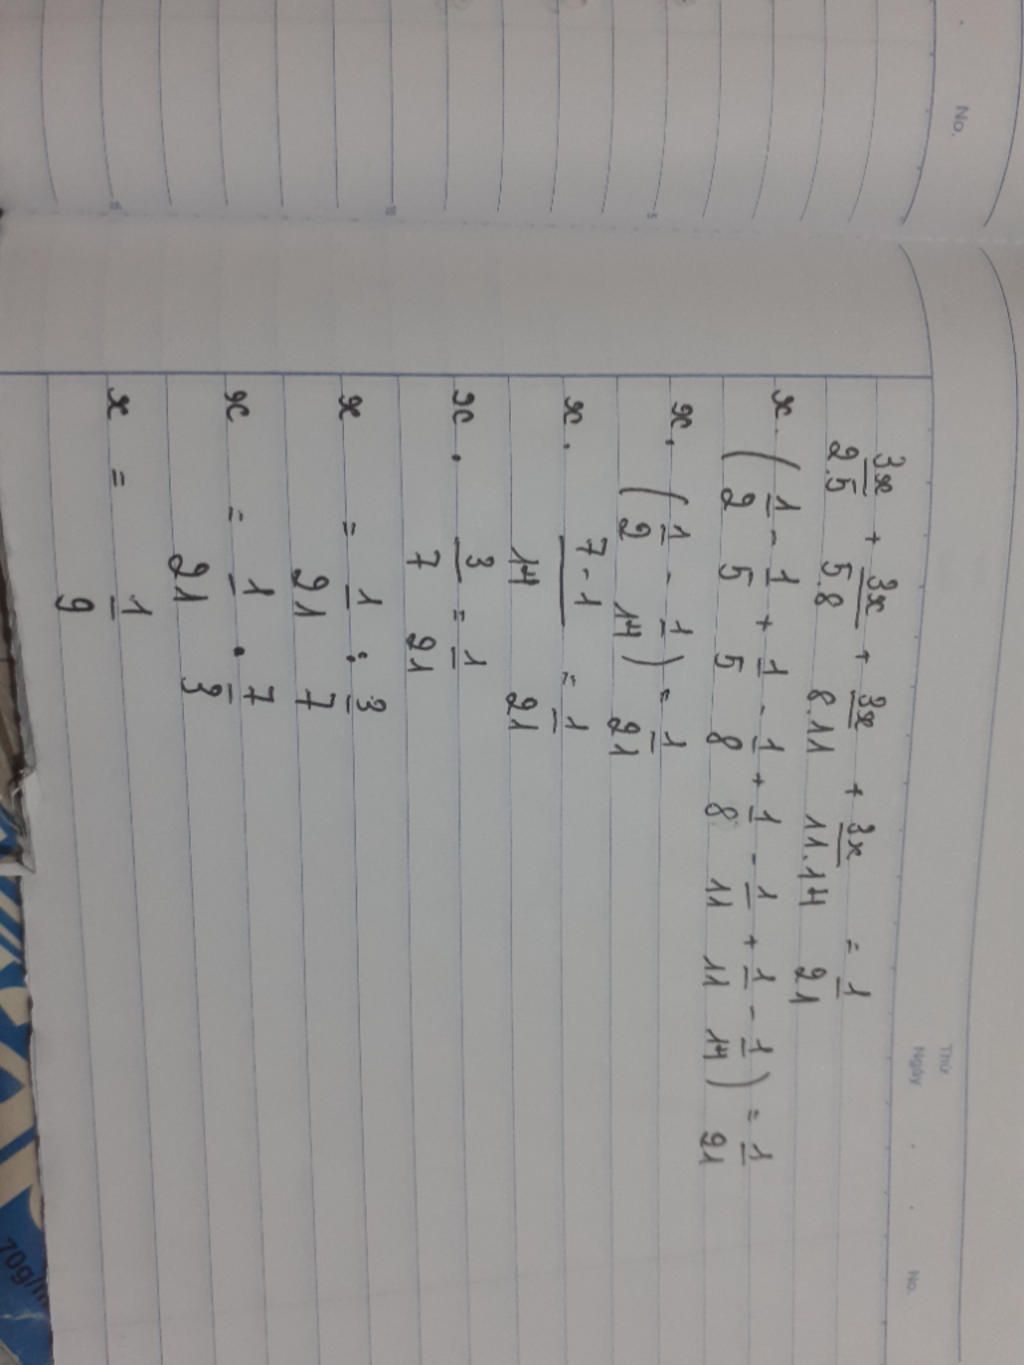 No.
Thứ
Ngày . . No.
3x/2.5 + 3x/5.8 + 3x/8.11 + 3x/11.14 = 1/21
x. (1/2 - 1/5 + 1/5 - 1/8 + 1/8 - 1/11 + 1/11 - 1/14) = 1/21
x. (1/2 - 1/14) = 1/21
x. 7-1/14 = 1/21
x. 3/7 = 1/21
x = 1/21 : 3/7
x = 1/21 . 7/3
x = 1/9
5
10
15
70g/m